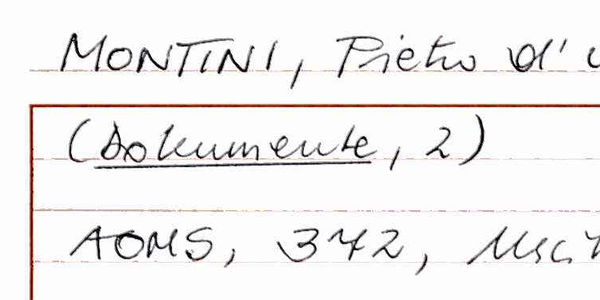 MONTINI, Pietro d'
(Dokumente, 2)
AOMS, 372,